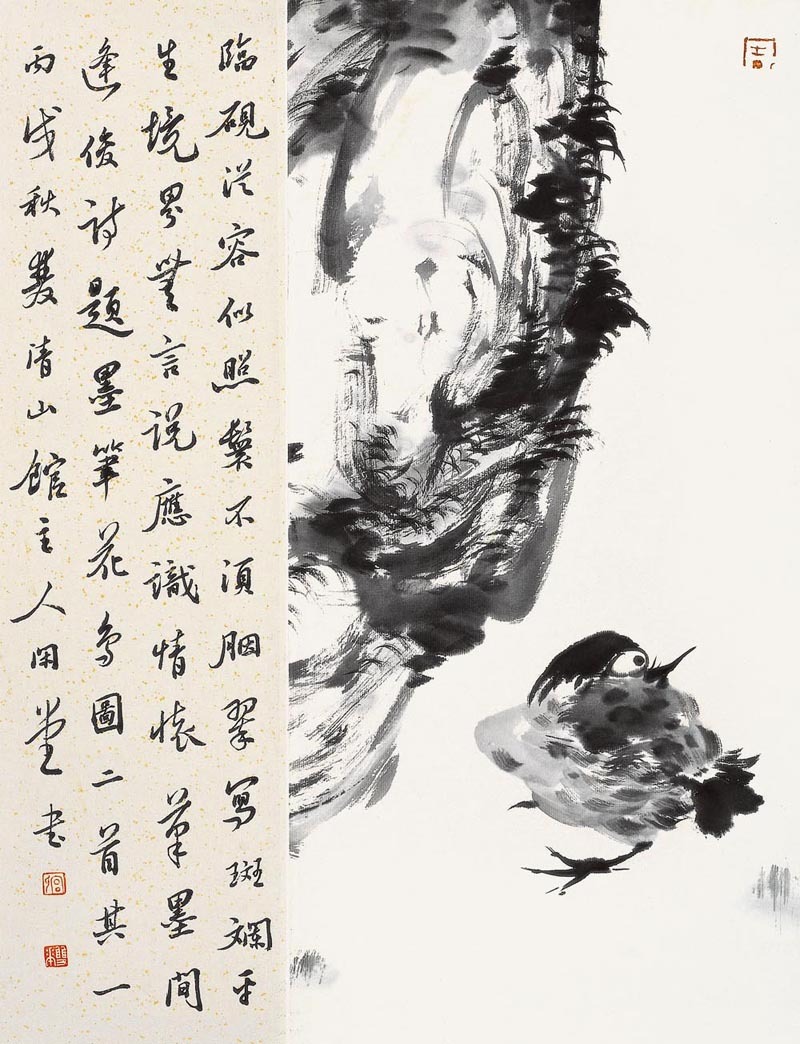 臨硯從容似照不須胭翠寫斑斕平
生境界無言說應識情懷筆墨間
逢俊詩題墨筆花鳥圖二首其一
丙戌秋雙清山館主人閑堂書